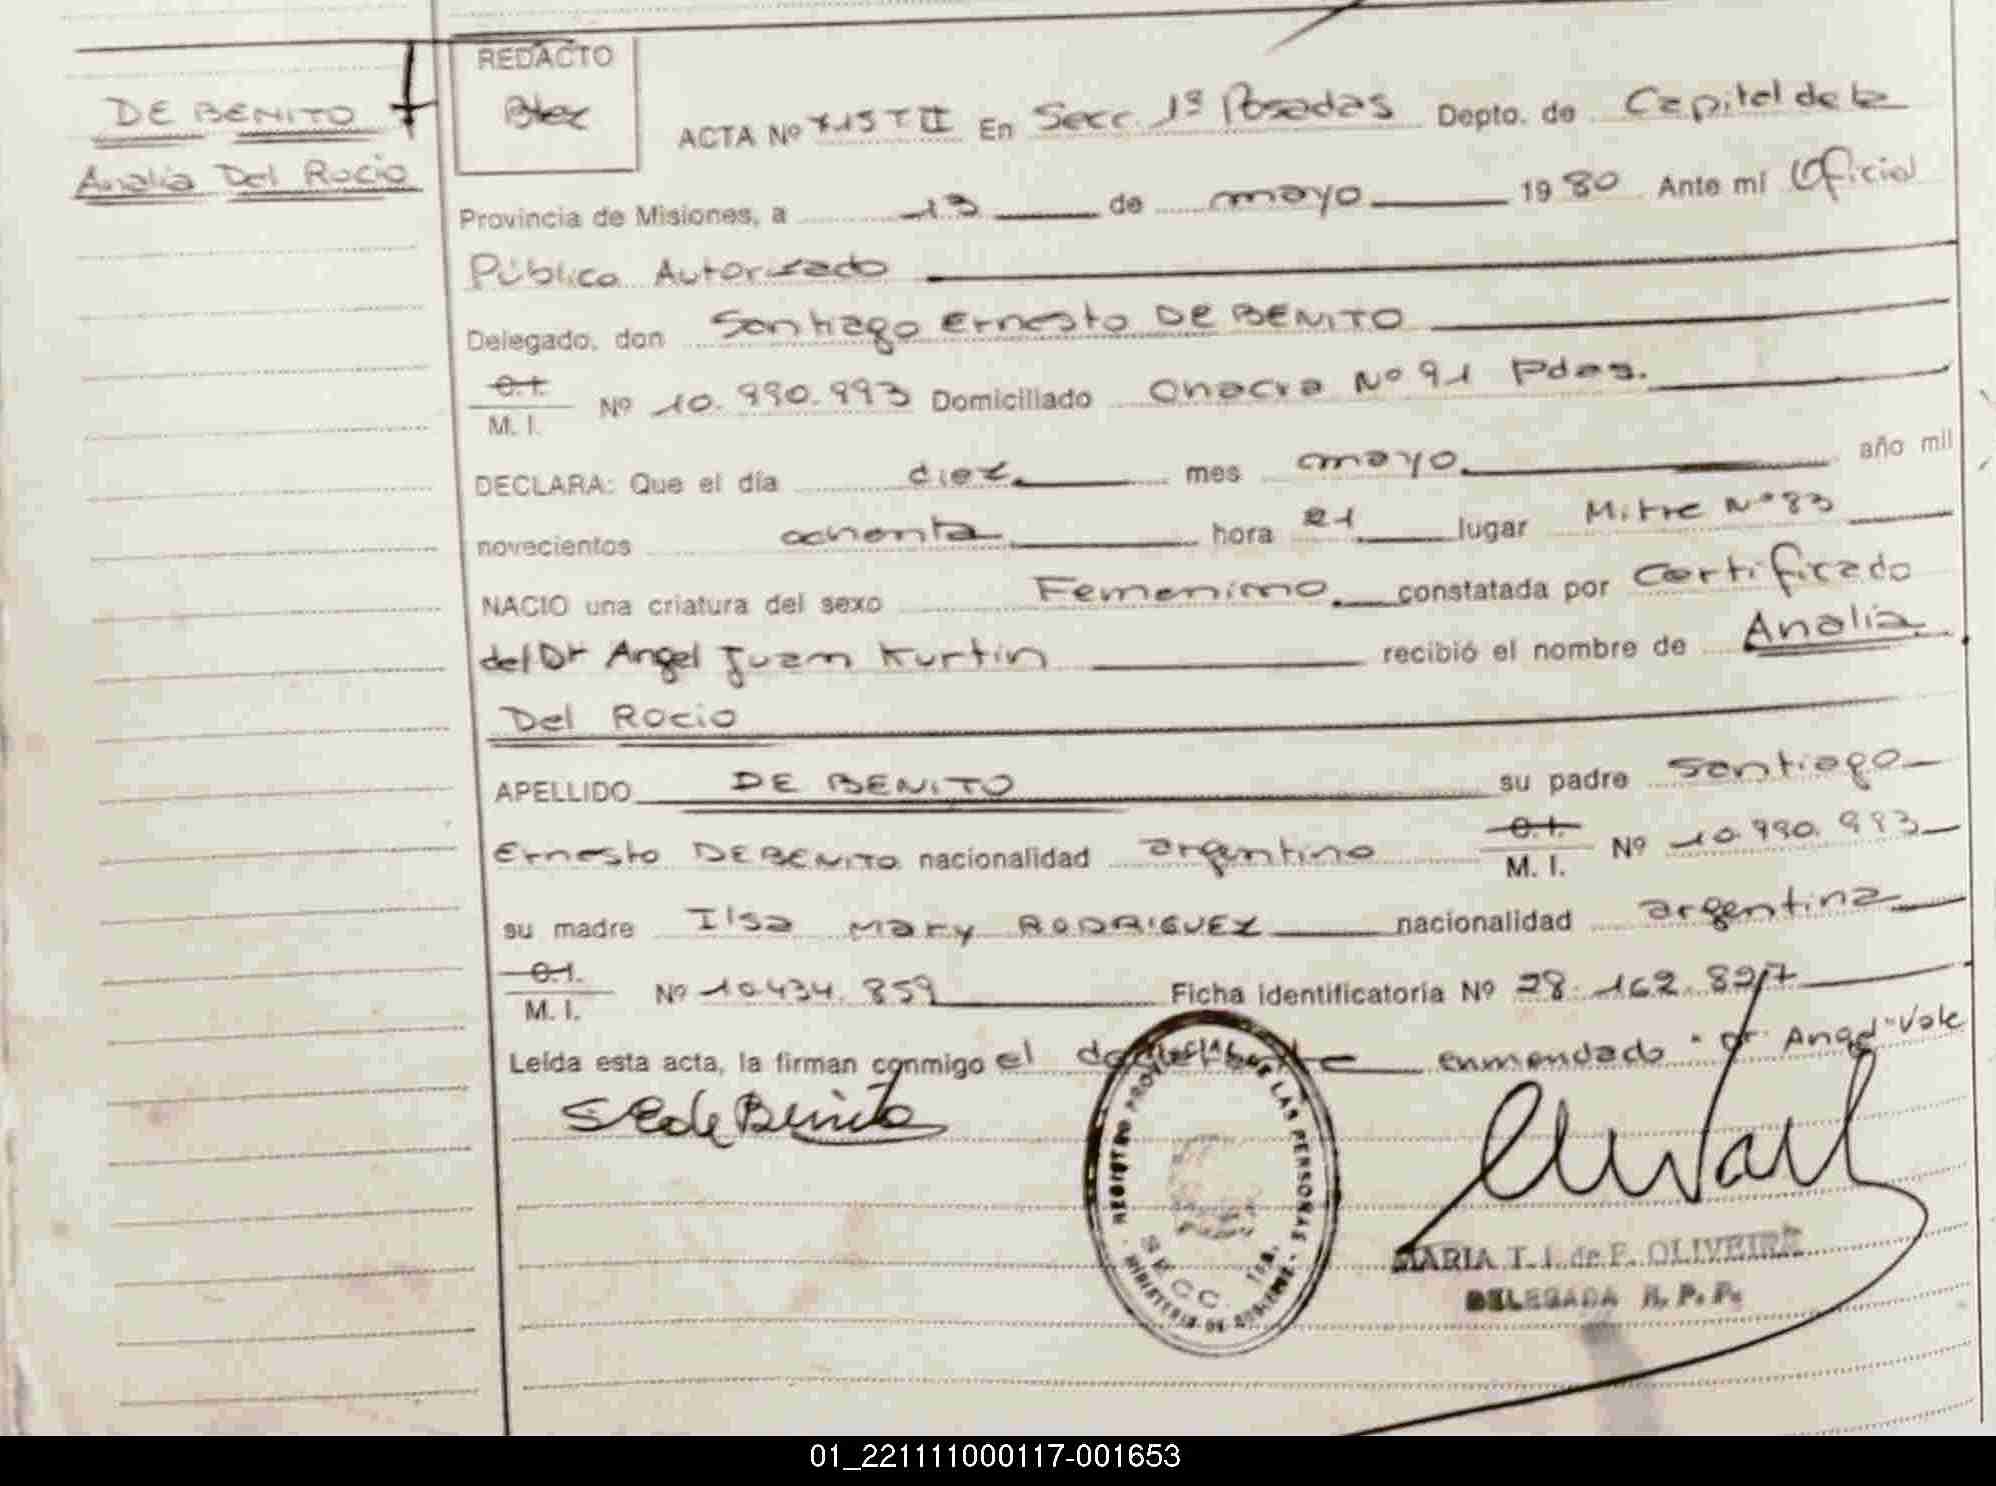 DE BENITO
Analia Del Rocio
REDACTO
ACTA Nº 715 T II En Secc. 1ª Posadas Depto. de Capital de la
Provincia de Misiones, a 13 de mayo 1980 Ante mí Oficial
Público Autorizado
Delegado, don Santiago Ernesto DE BENITO
C. I.
M. I. Nº 10.990.993 Domiciliado Chacra Nº 91 Pdas.
DECLARA: Que el día diez mes mayo año mil
novecientos ochenta hora 21 lugar Mitre Nº 83
NACIO una criatura del sexo Femenino constatada por Certificado
del Dr Angel Juan Kurtin recibió el nombre de Analia
Del Rocio
APELLIDO DE BENITO su padre Santiago
Ernesto DE BENITO nacionalidad argentino C. I. M. I. Nº 10.990.993
su madre Ilsa Mary RODRIGUEZ nacionalidad argentina
C. I.
M. I. Nº 10.434.859 Ficha identificatoria Nº 28.162.827
Leída esta acta, la firman conmigo el declarante enmendado "Dr Angel" Vale
S E de Benito
REGISTRO PROVINCIAL DE LAS PERSONAS
SECC. 1RA.
MINISTERIO DE GOBIERNO
MARIA T. I. de F. OLIVEIRA
DELEGADA R. P. P.
01_221111000117-001653